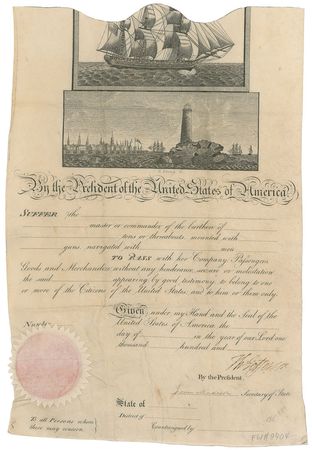 By the President of the United States of America,
SUFFER the
master or commander of the burthen of
tons or thereabouts mounted with
guns, navigated with men
TO PASS with her Company Passengers
Goods and Merchandize without any hinderance, seisure or molestation
the said appearing by good testimony to belong to one
or more of the Citizens of the United States and to him or them only.
Given under my Hand and the Seal of the
United States of America the
day of in the year of our Lord one
thousand hundred and
Numb
Th Jefferson
By the President
James Madison Secretary of State
State of
District of
Countersigned by
To all Persons whom
these may concern.